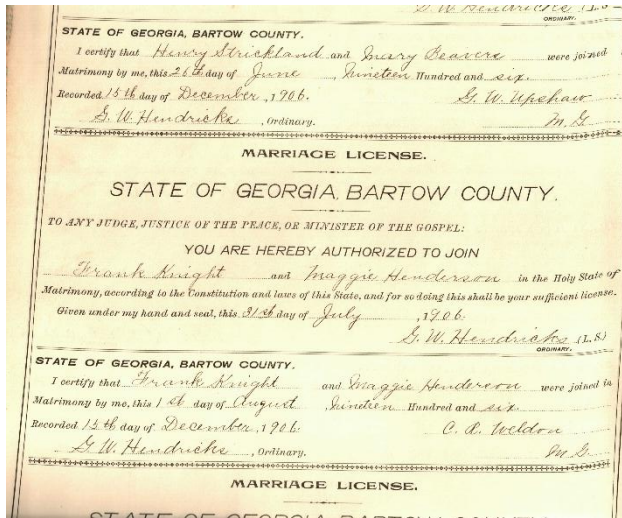 G. W. Hendricks (L.S.)
ORDINARY.
STATE OF GEORGIA, BARTOW COUNTY.
I certify that Henry Strickland and Mary Beavers were joined
Matrimony by me, this 26th day of June , Nineteen Hundred and six.
Recorded 15th day of December, 1906. G. W. Upshaw
G. W. Hendricks , Ordinary. M. G.
MARRIAGE LICENSE.
STATE OF GEORGIA, BARTOW COUNTY.
TO ANY JUDGE, JUSTICE OF THE PEACE, OR MINISTER OF THE GOSPEL:
YOU ARE HEREBY AUTHORIZED TO JOIN
Frank Knight and Maggie Henderson in the Holy State of
Matrimony, according to the Constitution and laws of this State, and for so doing this shall be your sufficient license.
Given under my hand and seal, this 31st day of July , 1906.
G. W. Hendricks (L.S.)
ORDINARY.
STATE OF GEORGIA, BARTOW COUNTY.
I certify that Frank Knight and Maggie Henderson were joined in
Matrimony by me, this 1st day of August , Nineteen Hundred and six.
Recorded 15th day of December, 1906. C. R. Weldon
G. W. Hendricks , Ordinary. M. G.
MARRIAGE LICENSE.
STATE OF GEORGIA, BARTOW COUNTY.